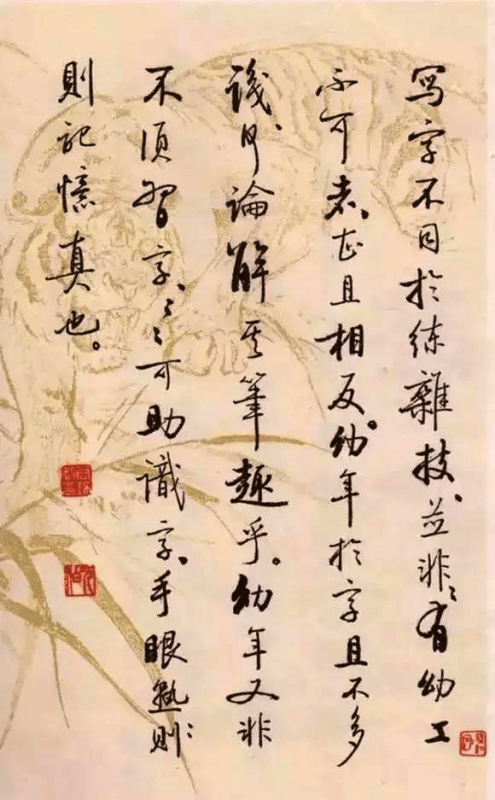 寫字不同於練雜技、並非有幼工
不可者、甚且相反。幼年於字且不多
識、何論解其筆趣乎。幼年又非
不須習字、〻〻可助識字、手眼熟則
則記憶真也。